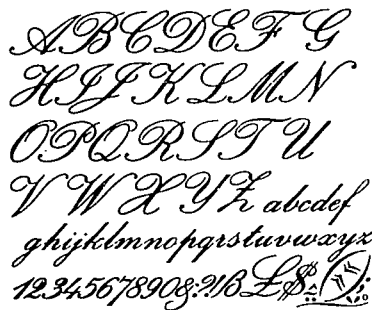 ABCDEFG
HIJKLMN
OPQRSTU
VWXYZ abcdef
ghijklmnopqrstuvwxyz
1234567890&?!ß£$